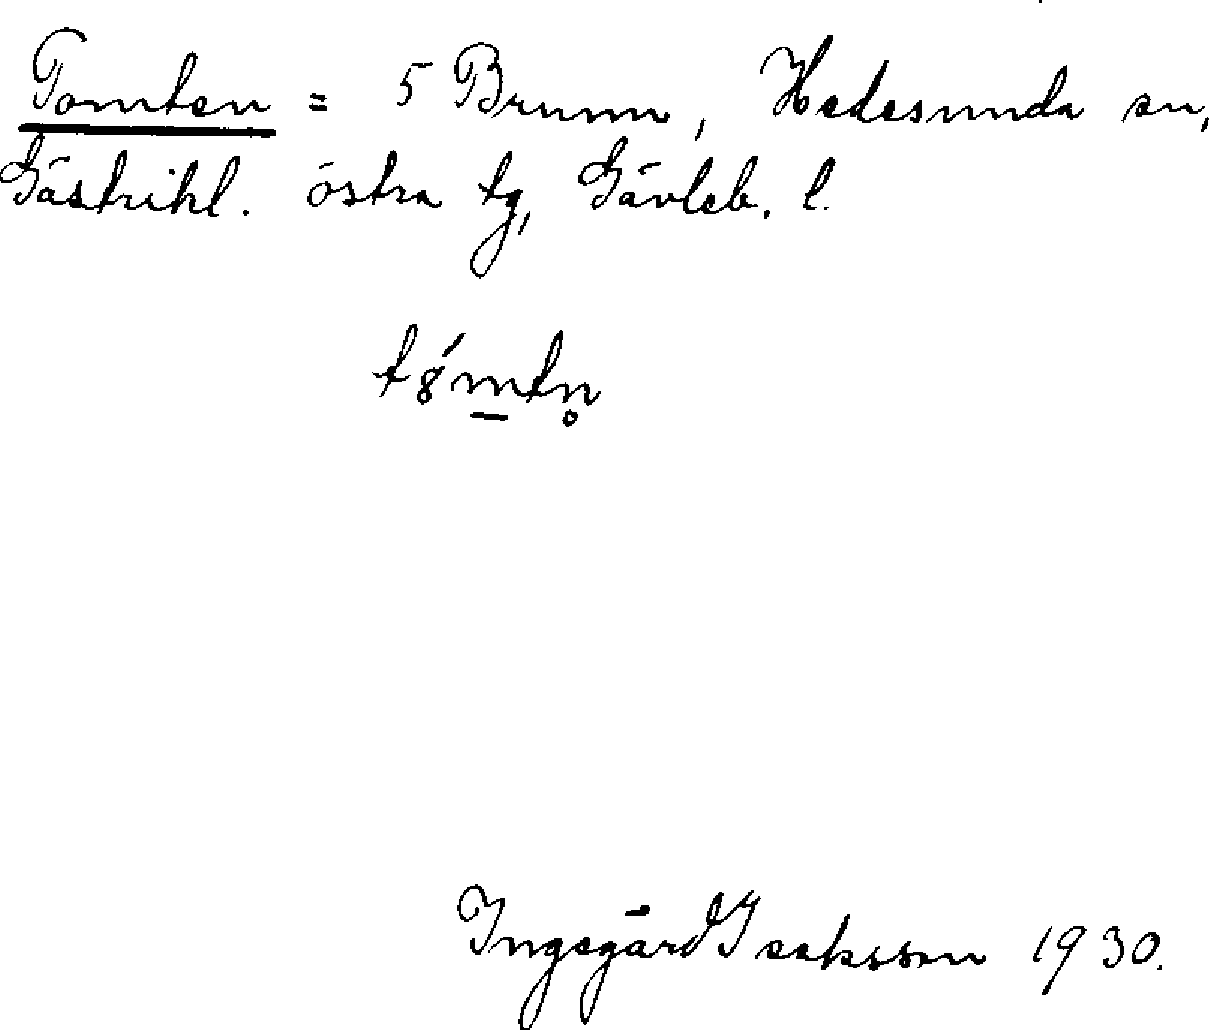 Tomten = 5 Brunn, Hedesunda sn,
Gästrikl. östra tg, Gävleb. l.
t8́mtn̥
Ingegärd Isaksson 1930.